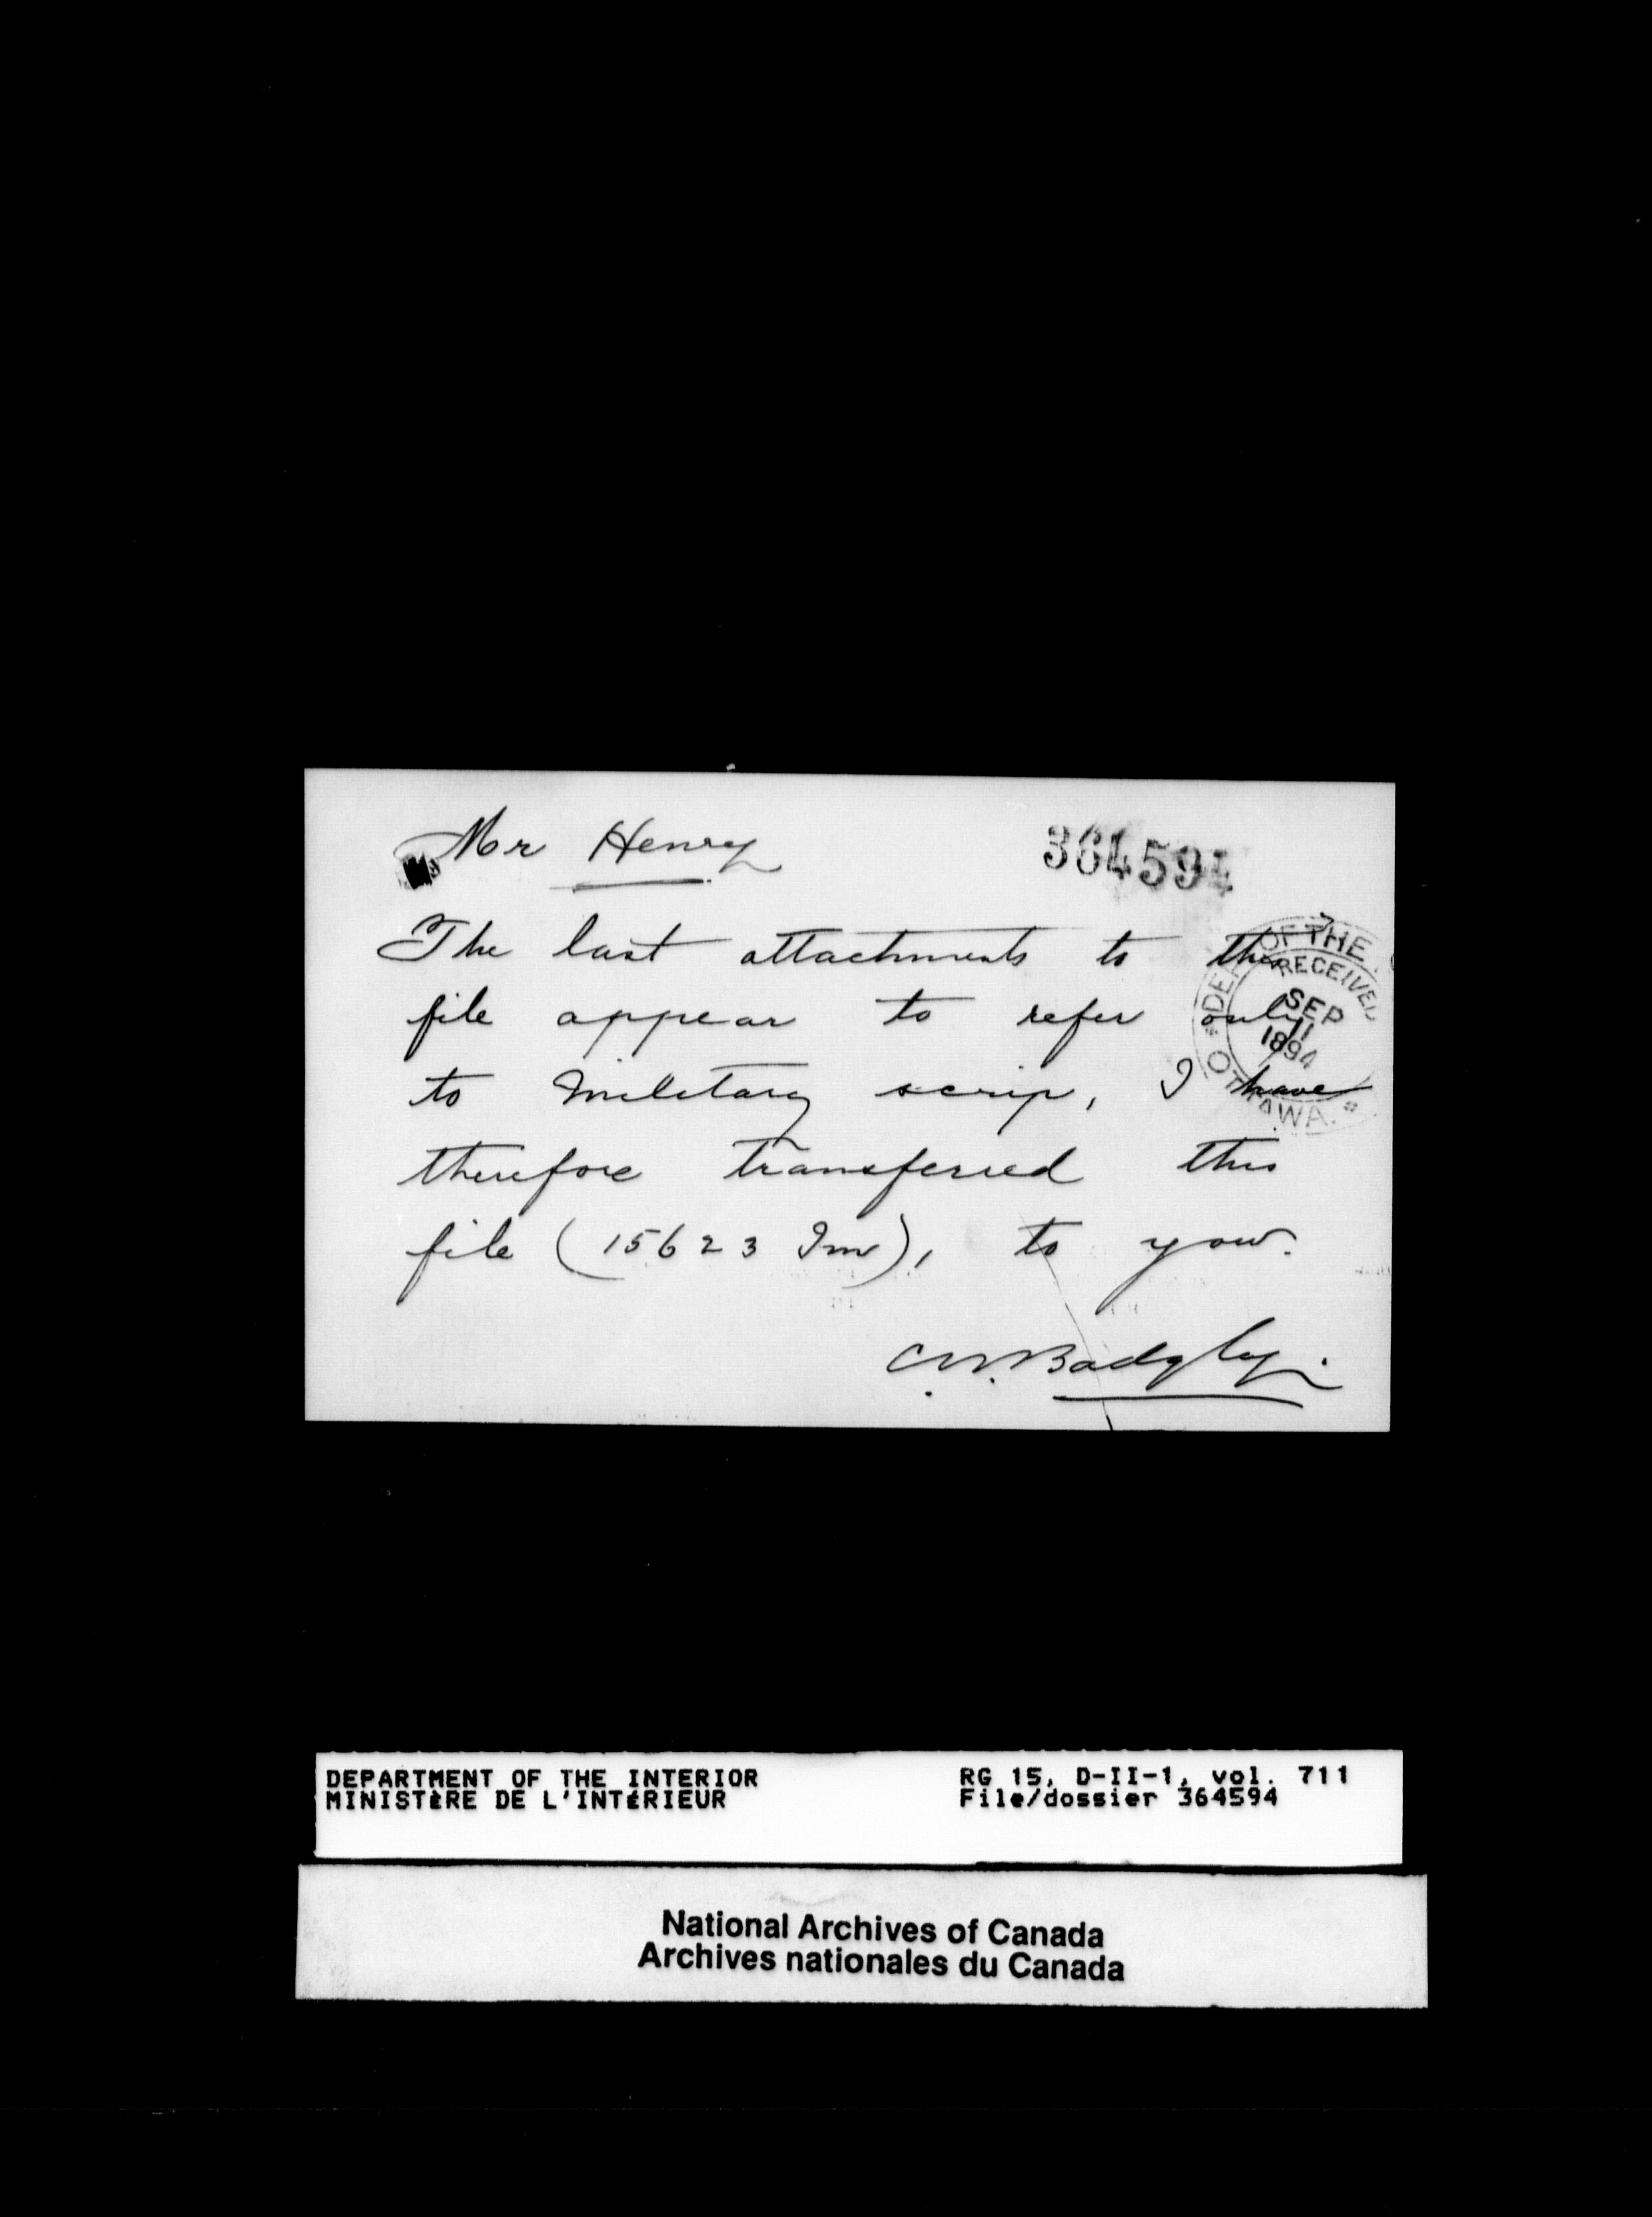 Mr Henry
364594
The last attachments to this
file appear to refer only
to military scrip, I have
therefore transferred this
file (15623 Im), to you.
C.W. Badgley.
OF THE
RECEIVED
SEP
11
1894
OTTAWA.
DEPARTMENT OF THE INTERIOR
MINISTÈRE DE L'INTÉRIEUR
RG 15, D-II-1, vol. 711
File/dossier 364594
National Archives of Canada
Archives nationales du Canada